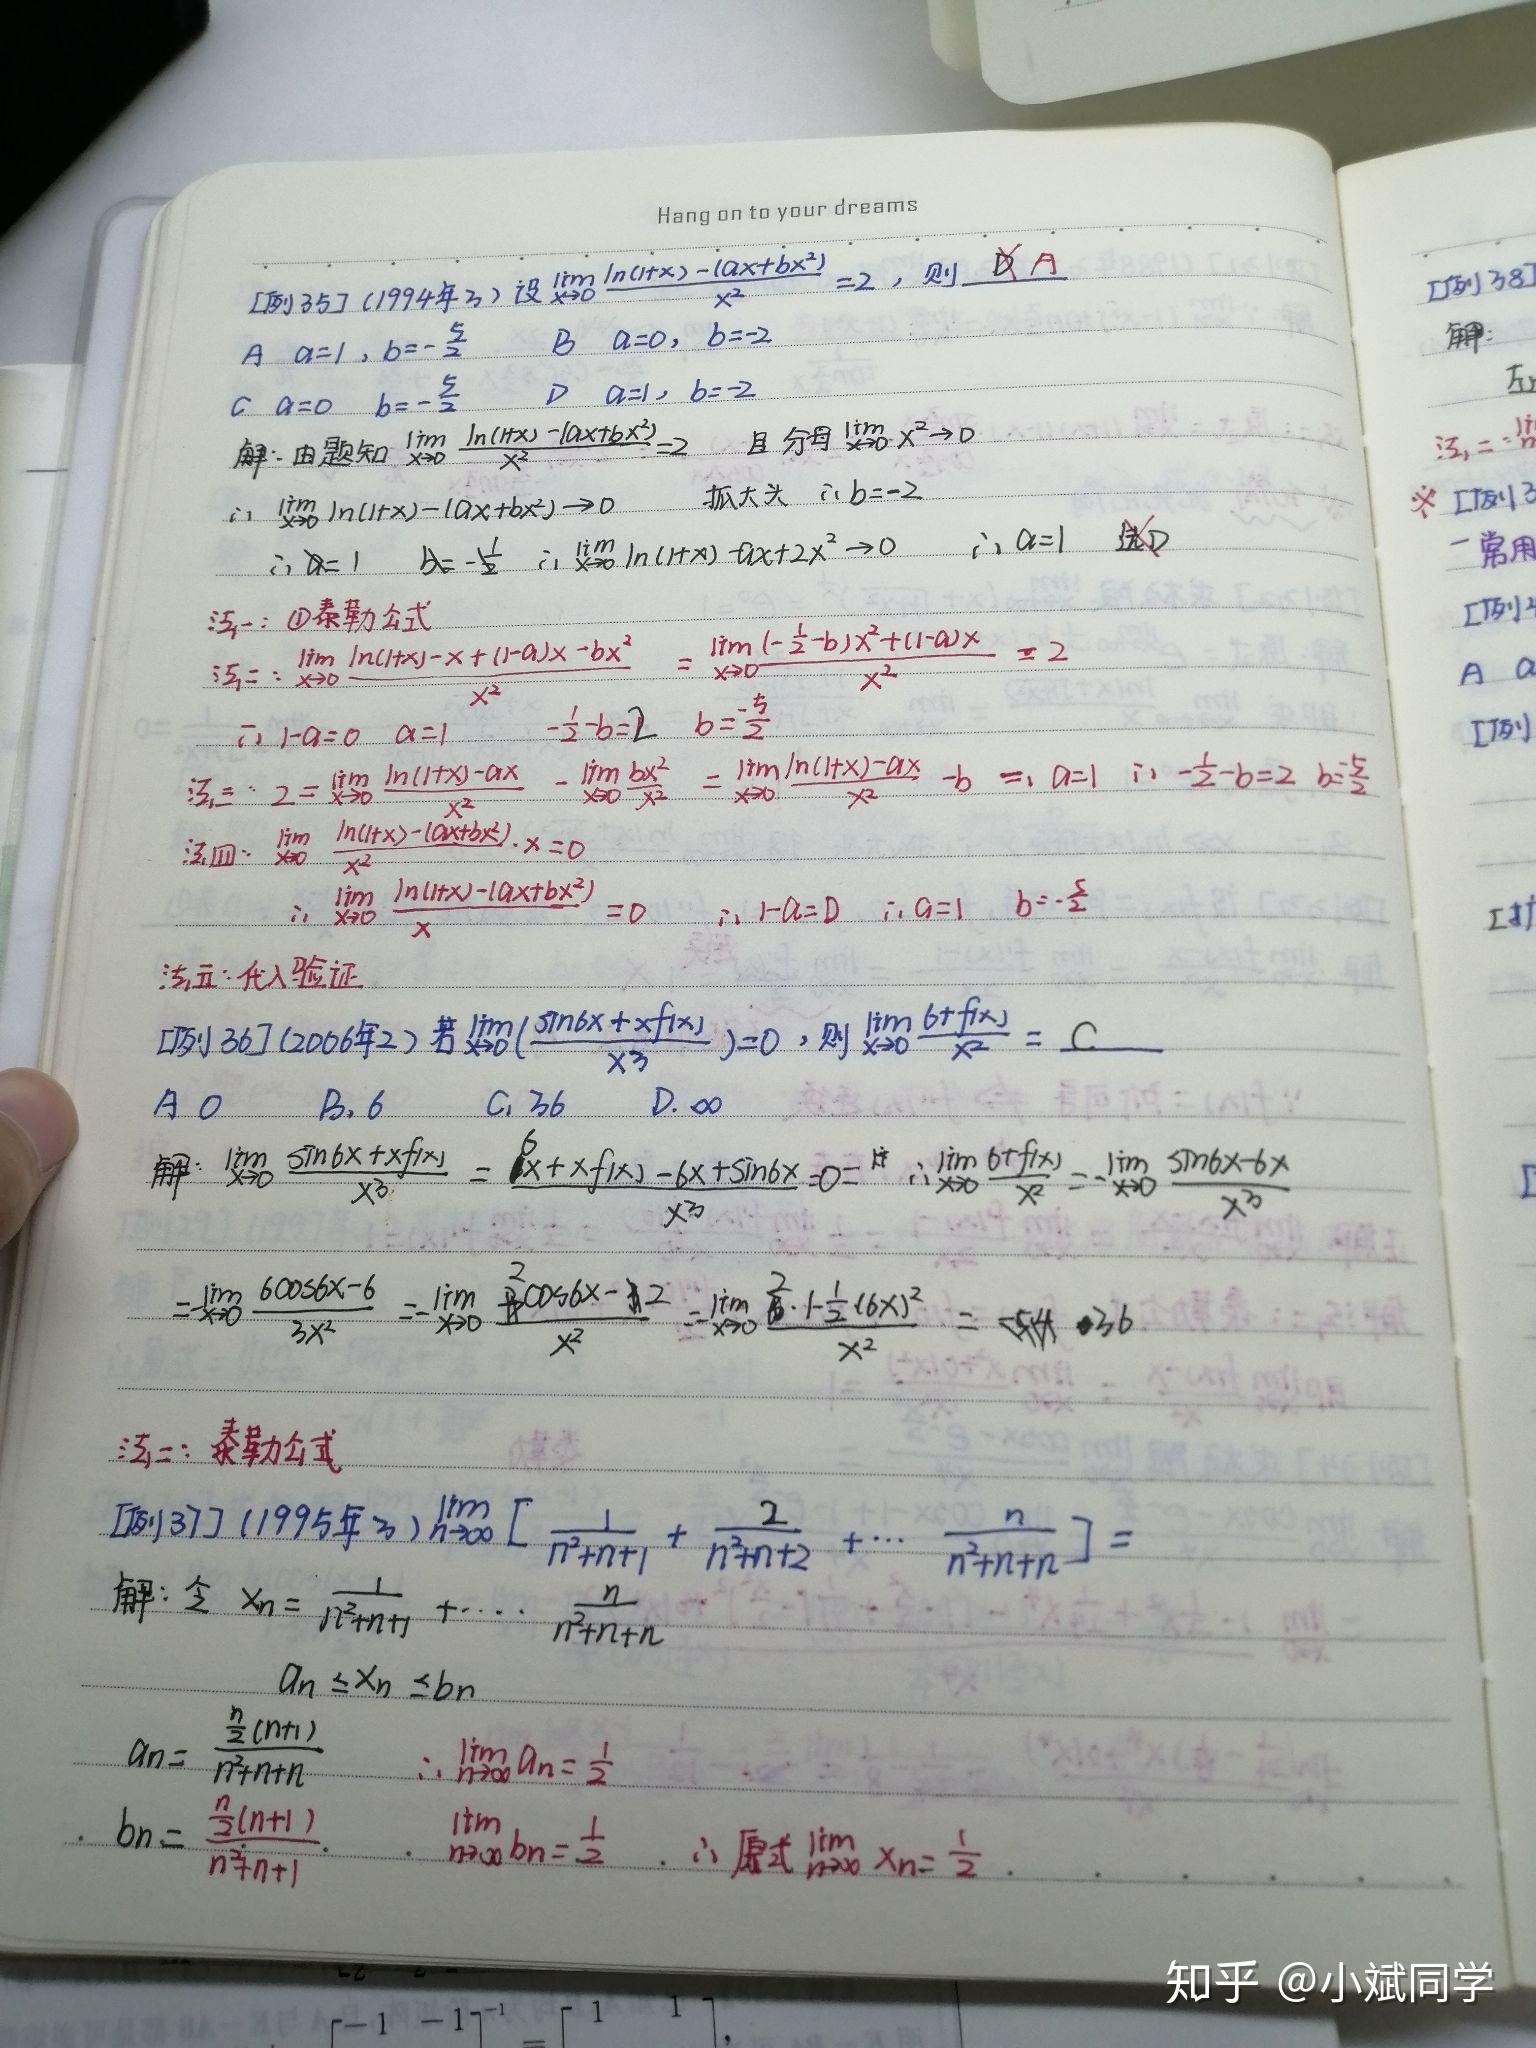 Hang on to your dreams
[例35](1994年3) 设 lim x→0 (ln(1+x)-(ax+bx²))/x² =2, 则 D A
A a=1, b=-5/2 B a=0, b=-2
C a=0 b=-5/2 D a=1, b=-2
解: 由题知 lim x→0 (ln(1+x)-(ax+bx²))/x² =2 且分母 lim x→0 x²→0
∴ lim x→0 ln(1+x)-(ax+bx²)→0 抓大头 ∴b=-2
∴ a=1 b=-1/2 ∴ lim x→0 ln(1+x)-ax+2x²→0 ∴a=1 选D
法一: ①泰勒公式
法二: lim x→0 (ln(1+x)-x+(1-a)x-bx²)/x² = lim x→0 ((-1/2-b)x²+(1-a)x)/x² =2
∴ 1-a=0 a=1 -1/2-b=2 b=-5/2
法三: 2= lim x→0 (ln(1+x)-ax)/x² - lim x→0 bx²/x² = lim x→0 (ln(1+x)-ax)/x² -b =∴ a=1 ∴ -1/2-b=2 b=-5/2
法四: lim x→0 (ln(1+x)-(ax+bx²))/x² ·x=0
∴ lim x→0 (ln(1+x)-(ax+bx²))/x =0 ∴1-a=0 ∴a=1 b=-5/2
法五: 代入验证
[例36](2006年2) 若 lim x→0 ((sin6x+xf(x))/x³)=0, 则 lim x→0 (6+f(x))/x² = C
A 0 B. 6 C. 36 D. ∞
解: lim x→0 (sin6x+xf(x))/x³ = (6x+xf(x)-6x+sin6x)/x³ =0= ∴ lim x→0 (6+f(x))/x² =- lim x→0 (sin6x-6x)/x³
=- lim x→0 (6cos6x-6)/3x² =- lim x→0 (2cos6x-2)/x² =- lim x→0 (2·1-1/2(6x)²)/x² = 36
法二: 泰勒公式
[例37](1995年3) lim n→∞ [1/(n²+n+1) + 2/(n²+n+2) +… n/(n²+n+n)] =
解: 令 xn= 1/(n²+n+1) +…. n/(n²+n+n)
an ≤ xn ≤ bn
an= (n/2(n+1))/(n²+n+n) ∴ lim n→∞ an=1/2
bn= (n/2(n+1))/(n²+n+1) lim n→∞ bn=1/2 ∴原式 lim n→∞ xn=1/2
[例38]
解:
一常用
A a
-1 -1 -1 = 1 1 ,
知乎 @小斌同学